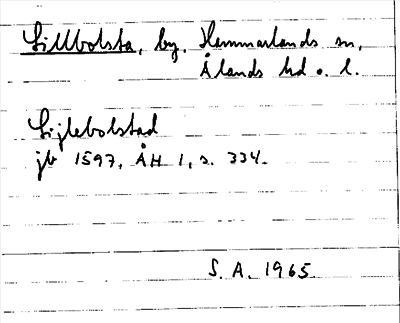 Lillbolsta, by, Hammarlands sn,
Ålands hd o. l.
Lijlebolstad
jb 1597, ÅH 1, s. 334.
S. A. 1965